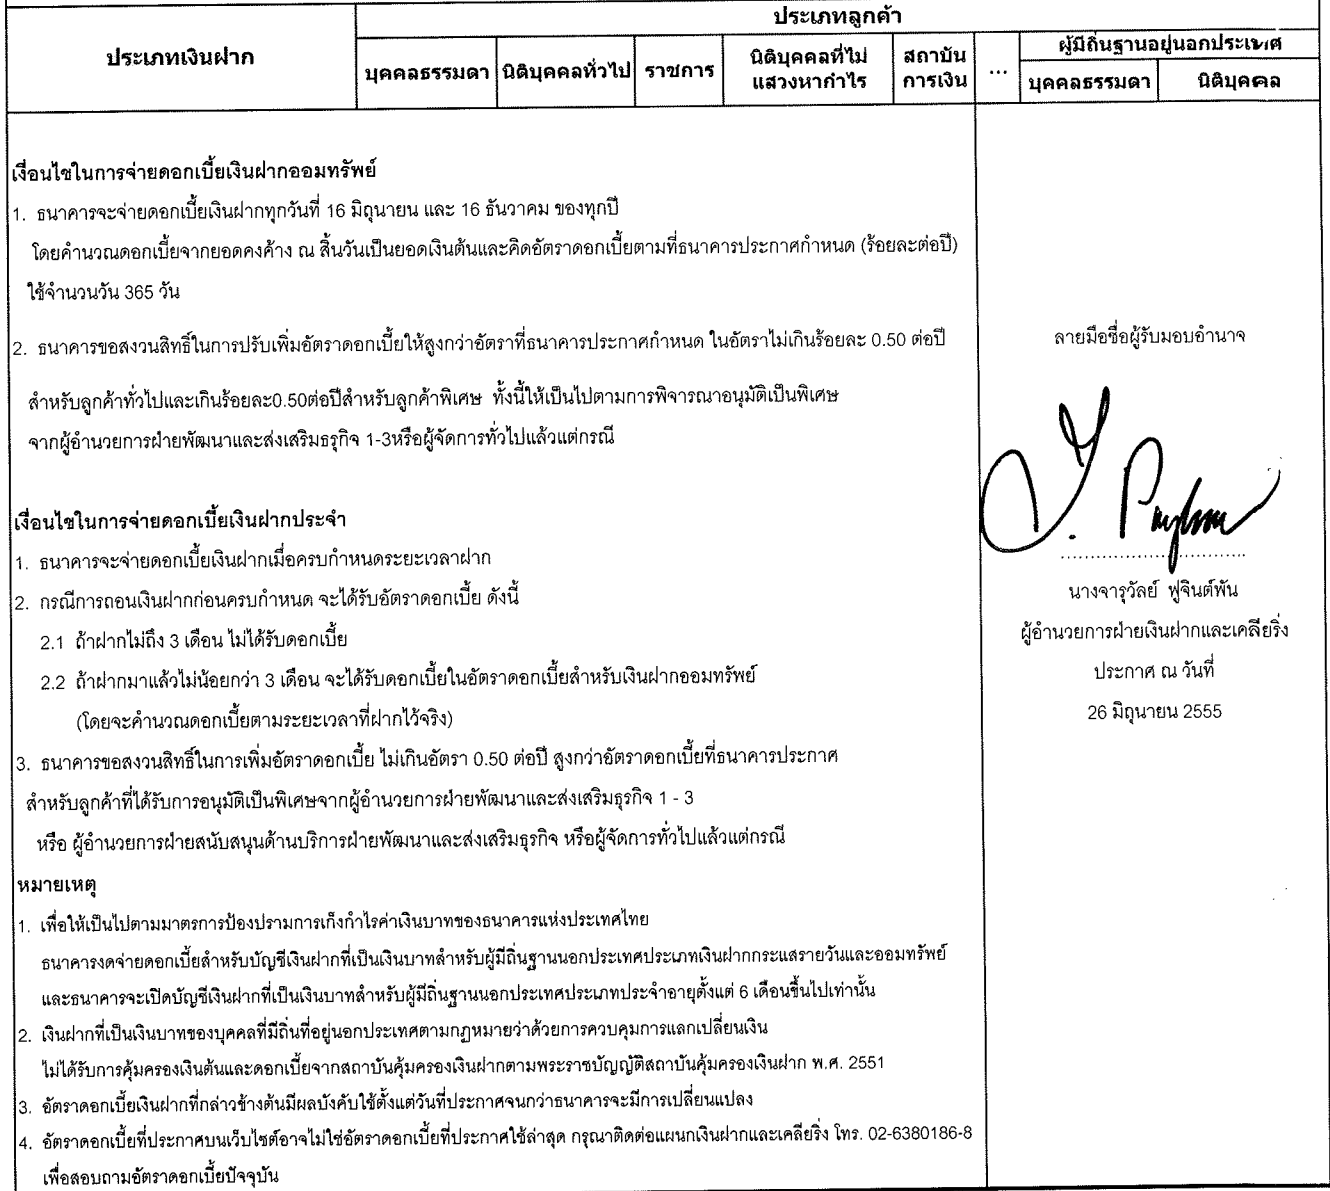 ประเภทเงินฝาก
ประเภทลูกค้า
บุคคลธรรมดา
นิติบุคคลทั่วไป
ราชการ
นิติบุคคลที่ไม่
แสวงหากำไร
สถาบัน
การเงิน
...
ผู้มีถิ่นฐานอยู่นอกประเทศ
บุคคลธรรมดา
นิติบุคคล
เงื่อนไขในการจ่ายดอกเบี้ยเงินฝากออมทรัพย์
1. ธนาคารจะจ่ายดอกเบี้ยเงินฝากทุกวันที่ 16 มิถุนายน และ 16 ธันวาคม ของทุกปี
โดยคำนวณดอกเบี้ยจากยอดคงค้าง ณ สิ้นวันเป็นยอดเงินต้นและคิดอัตราดอกเบี้ยตามที่ธนาคารประกาศกำหนด (ร้อยละต่อปี)
ใช้จำนวนวัน 365 วัน
2. ธนาคารขอสงวนสิทธิ์ในการปรับเพิ่มอัตราดอกเบี้ยให้สูงกว่าอัตราที่ธนาคารประกาศกำหนด ในอัตราไม่เกินร้อยละ 0.50 ต่อปี
สำหรับลูกค้าทั่วไปและเกินร้อยละ0.50ต่อปีสำหรับลูกค้าพิเศษ ทั้งนี้ให้เป็นไปตามการพิจารณาอนุมัติเป็นพิเศษ
จากผู้อำนวยการฝ่ายพัฒนาและส่งเสริมธุรกิจ 1-3หรือผู้จัดการทั่วไปแล้วแต่กรณี
เงื่อนไขในการจ่ายดอกเบี้ยเงินฝากประจำ
1. ธนาคารจะจ่ายดอกเบี้ยเงินฝากเมื่อครบกำหนดระยะเวลาฝาก
2. กรณีการถอนเงินฝากก่อนครบกำหนด จะได้รับอัตราดอกเบี้ย ดังนี้
2.1 ถ้าฝากไม่ถึง 3 เดือน ไม่ได้รับดอกเบี้ย
2.2 ถ้าฝากมาแล้วไม่น้อยกว่า 3 เดือน จะได้รับดอกเบี้ยในอัตราดอกเบี้ยสำหรับเงินฝากออมทรัพย์
(โดยจะคำนวณดอกเบี้ยตามระยะเวลาที่ฝากไว้จริง)
3. ธนาคารขอสงวนสิทธิ์ในการเพิ่มอัตราดอกเบี้ย ไม่เกินอัตรา 0.50 ต่อปี สูงกว่าอัตราดอกเบี้ยที่ธนาคารประกาศ
สำหรับลูกค้าที่ได้รับการอนุมัติเป็นพิเศษจากผู้อำนวยการฝ่ายพัฒนาและส่งเสริมธุรกิจ 1 - 3
หรือ ผู้อำนวยการฝ่ายสนับสนุนด้านบริการฝ่ายพัฒนาและส่งเสริมธุรกิจ หรือผู้จัดการทั่วไปแล้วแต่กรณี
หมายเหตุ
1. เพื่อให้เป็นไปตามมาตรการป้องปรามการเก็งกำไรค่าเงินบาทของธนาคารแห่งประเทศไทย
ธนาคารงดจ่ายดอกเบี้ยสำหรับบัญชีเงินฝากที่เป็นเงินบาทสำหรับผู้มีถิ่นฐานนอกประเทศประเภทเงินฝากกระแสรายวันและออมทรัพย์
และธนาคารจะเปิดบัญชีเงินฝากที่เป็นเงินบาทสำหรับผู้มีถิ่นฐานนอกประเทศประเภทประจำอายุตั้งแต่ 6 เดือนขึ้นไปเท่านั้น
2. เงินฝากที่เป็นเงินบาทของบุคคลที่มีถิ่นที่อยู่นอกประเทศตามกฎหมายว่าด้วยการควบคุมการแลกเปลี่ยนเงิน
ไม่ได้รับการคุ้มครองเงินต้นและดอกเบี้ยจากสถาบันคุ้มครองเงินฝากตามพระราชบัญญัติสถาบันคุ้มครองเงินฝาก พ.ศ. 2551
3. อัตราดอกเบี้ยเงินฝากที่กล่าวข้างต้นมีผลบังคับใช้ตั้งแต่วันที่ประกาศจนกว่าธนาคารจะมีการเปลี่ยนแปลง
4. อัตราดอกเบี้ยที่ประกาศบนเว็บไซต์อาจไม่ใช่อัตราดอกเบี้ยที่ประกาศใช้ล่าสุด กรุณาติดต่อแผนกเงินฝากและเคลียริ่ง โทร. 02-6380186-8
เพื่อสอบถามอัตราดอกเบี้ยปัจจุบัน
ลายมือชื่อผู้รับมอบอำนาจ
นางจารุวัลย์ ฟูจินต์พัน
ผู้อำนวยการฝ่ายเงินฝากและเคลียริ่ง
ประกาศ ณ วันที่
26 มิถุนายน 2555